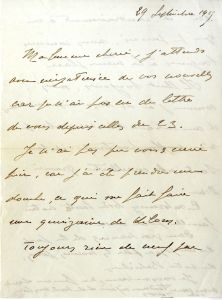 29 Septembre 19
Madame chérie, j'attends
avec impatience de vos nouvelles
car je n'ai pas eu de lettre
de vous depuis celles du 23.
Je n'ai pas pu vous
car j'ai dû prendre une
douche, ce qui me fait faire
une quinzaine de
Toujours rien de neuf par